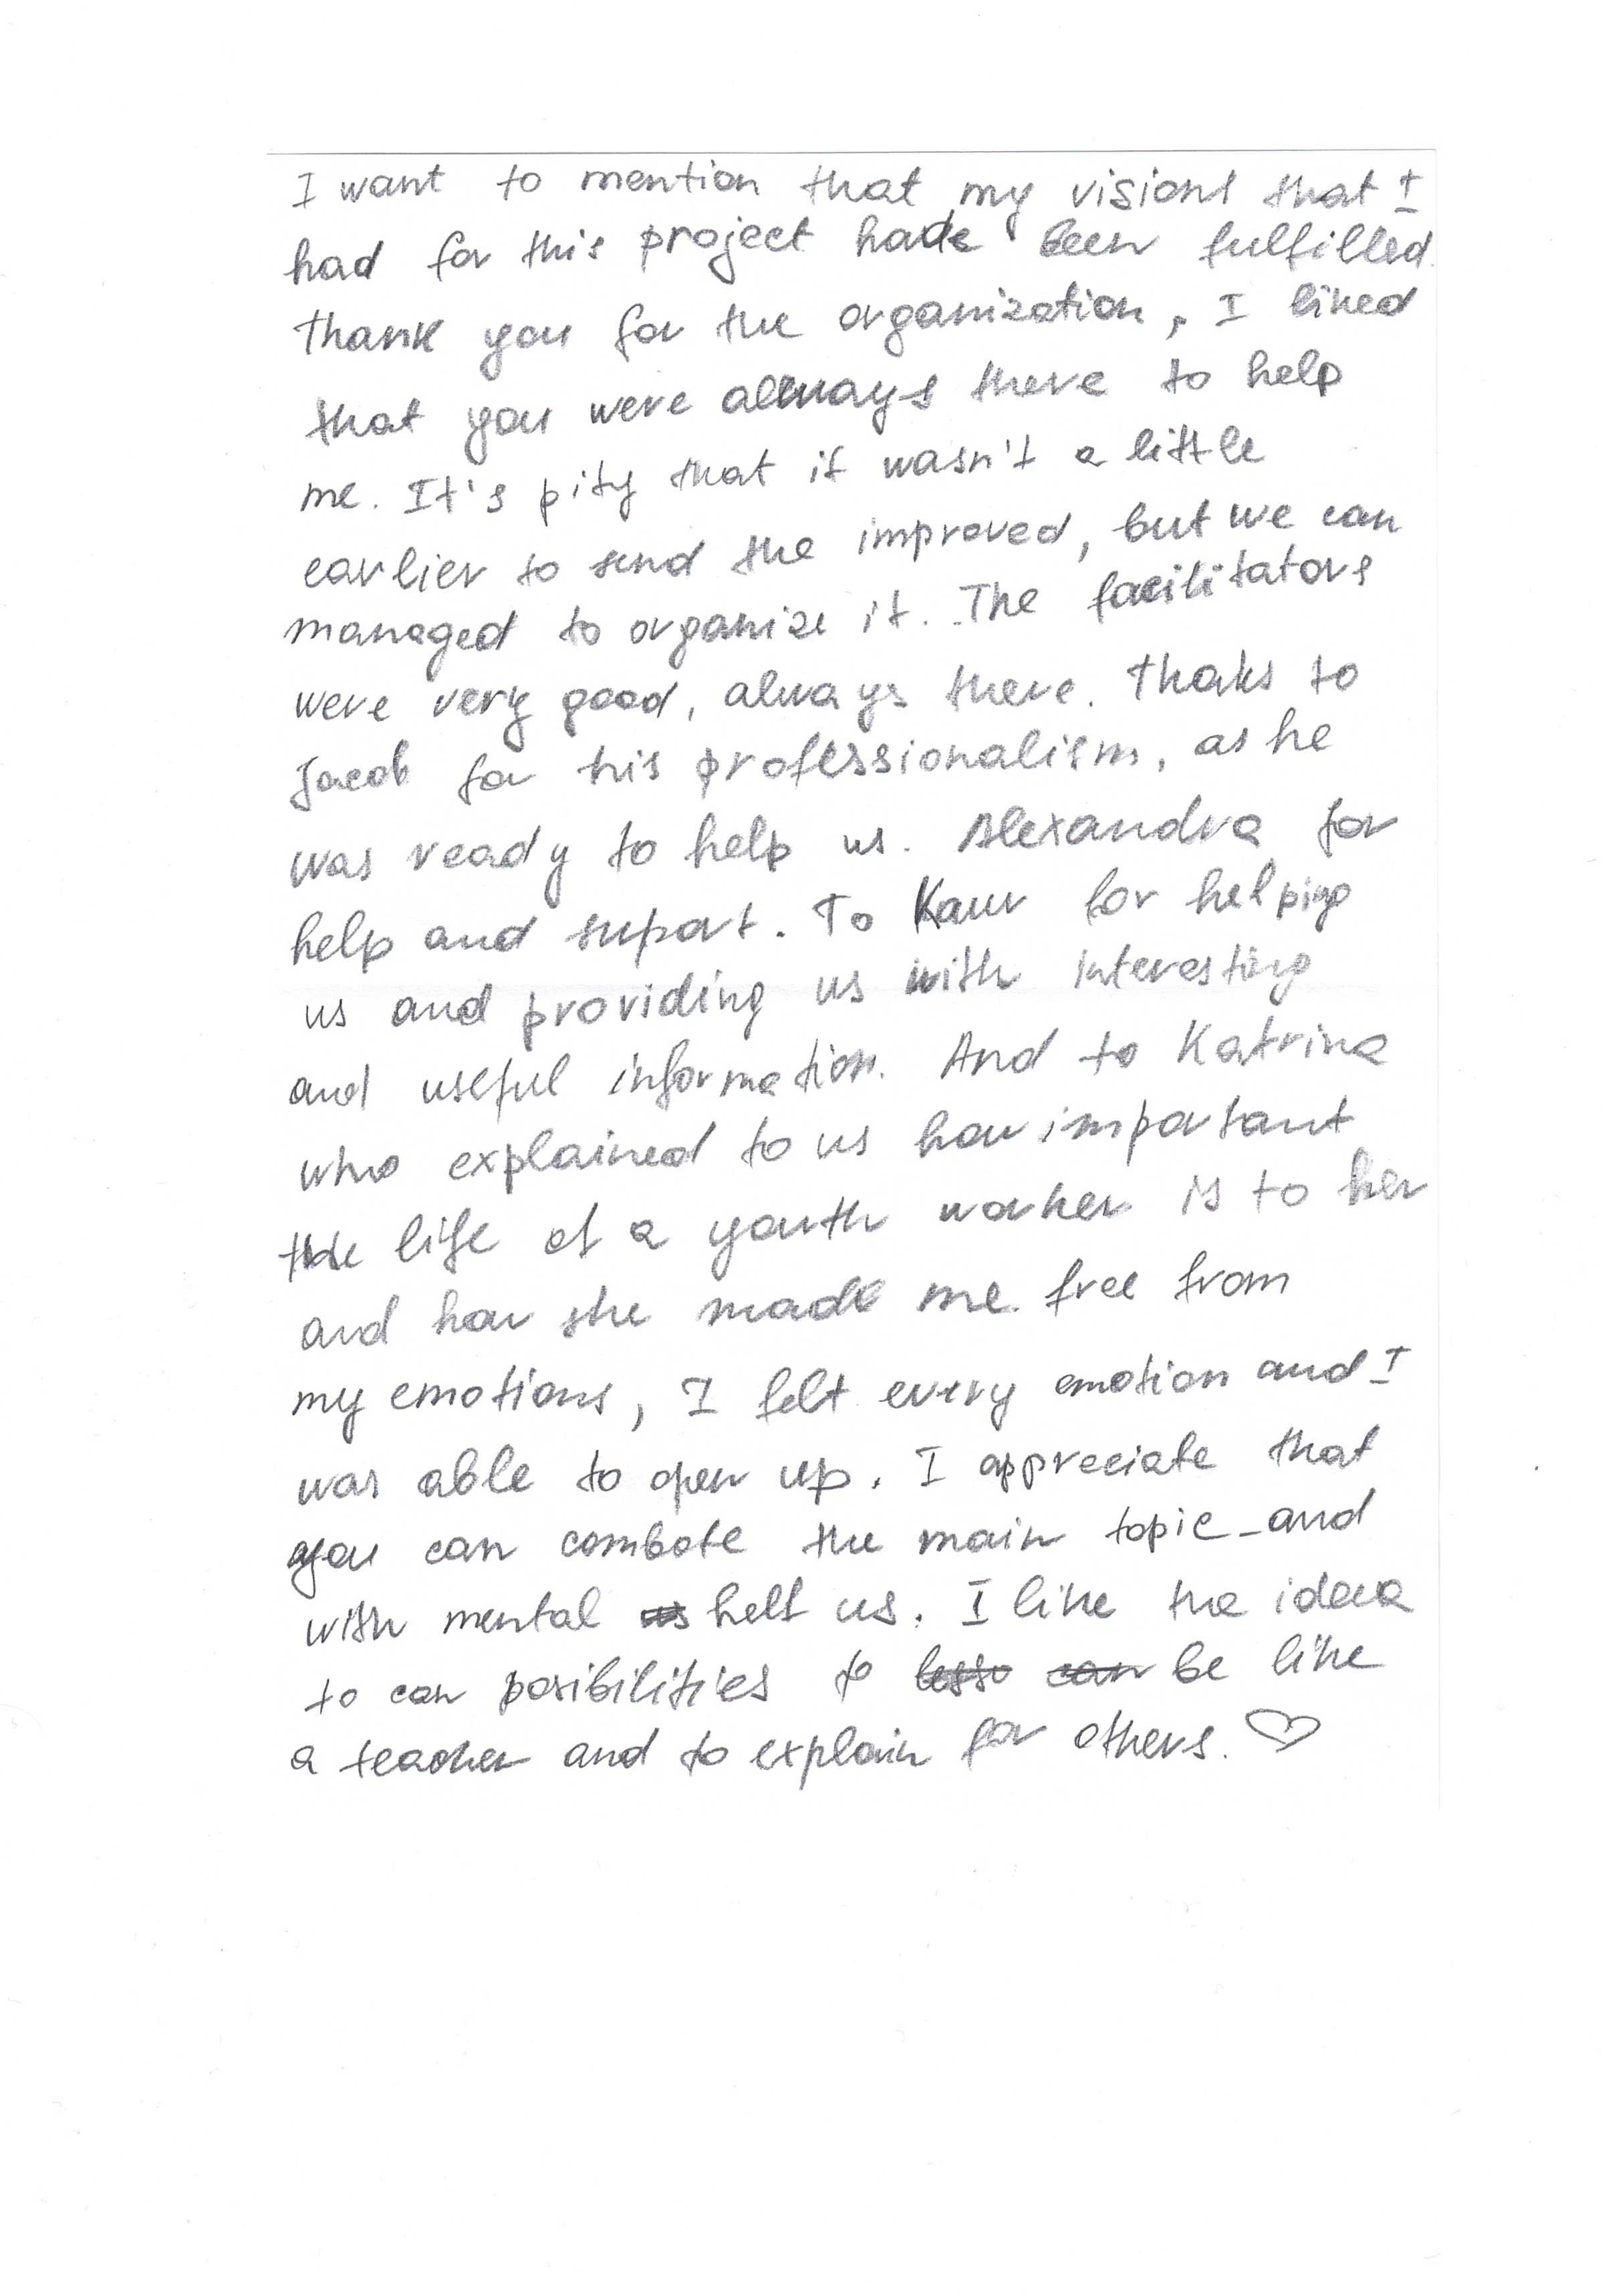 I want to mention that my visions that I
had for this project have been fulfilled.
Thank you for the organization, I liked
that you were always there to help
me. It's pity that it wasn't a little
earlier to send the improved, but we can
managed to organize it. The facilitators
were very good, always there. Thaks to
Jacob for his professionalism, as he
was ready to help us. Alexandra for
help and suport. To Kaur for helping
us and providing us with interesting
and useful information. And to Katrina
who explained to us how important
the life of a youth worker is to her
and how she made me free from
my emotions, I felt every emotion and I
was able to open up. I appreciate that
you can combate the main topic and
with mental helf us. I like the ideea
to can posibilities to be like
a teacher and to explain for others. ♡